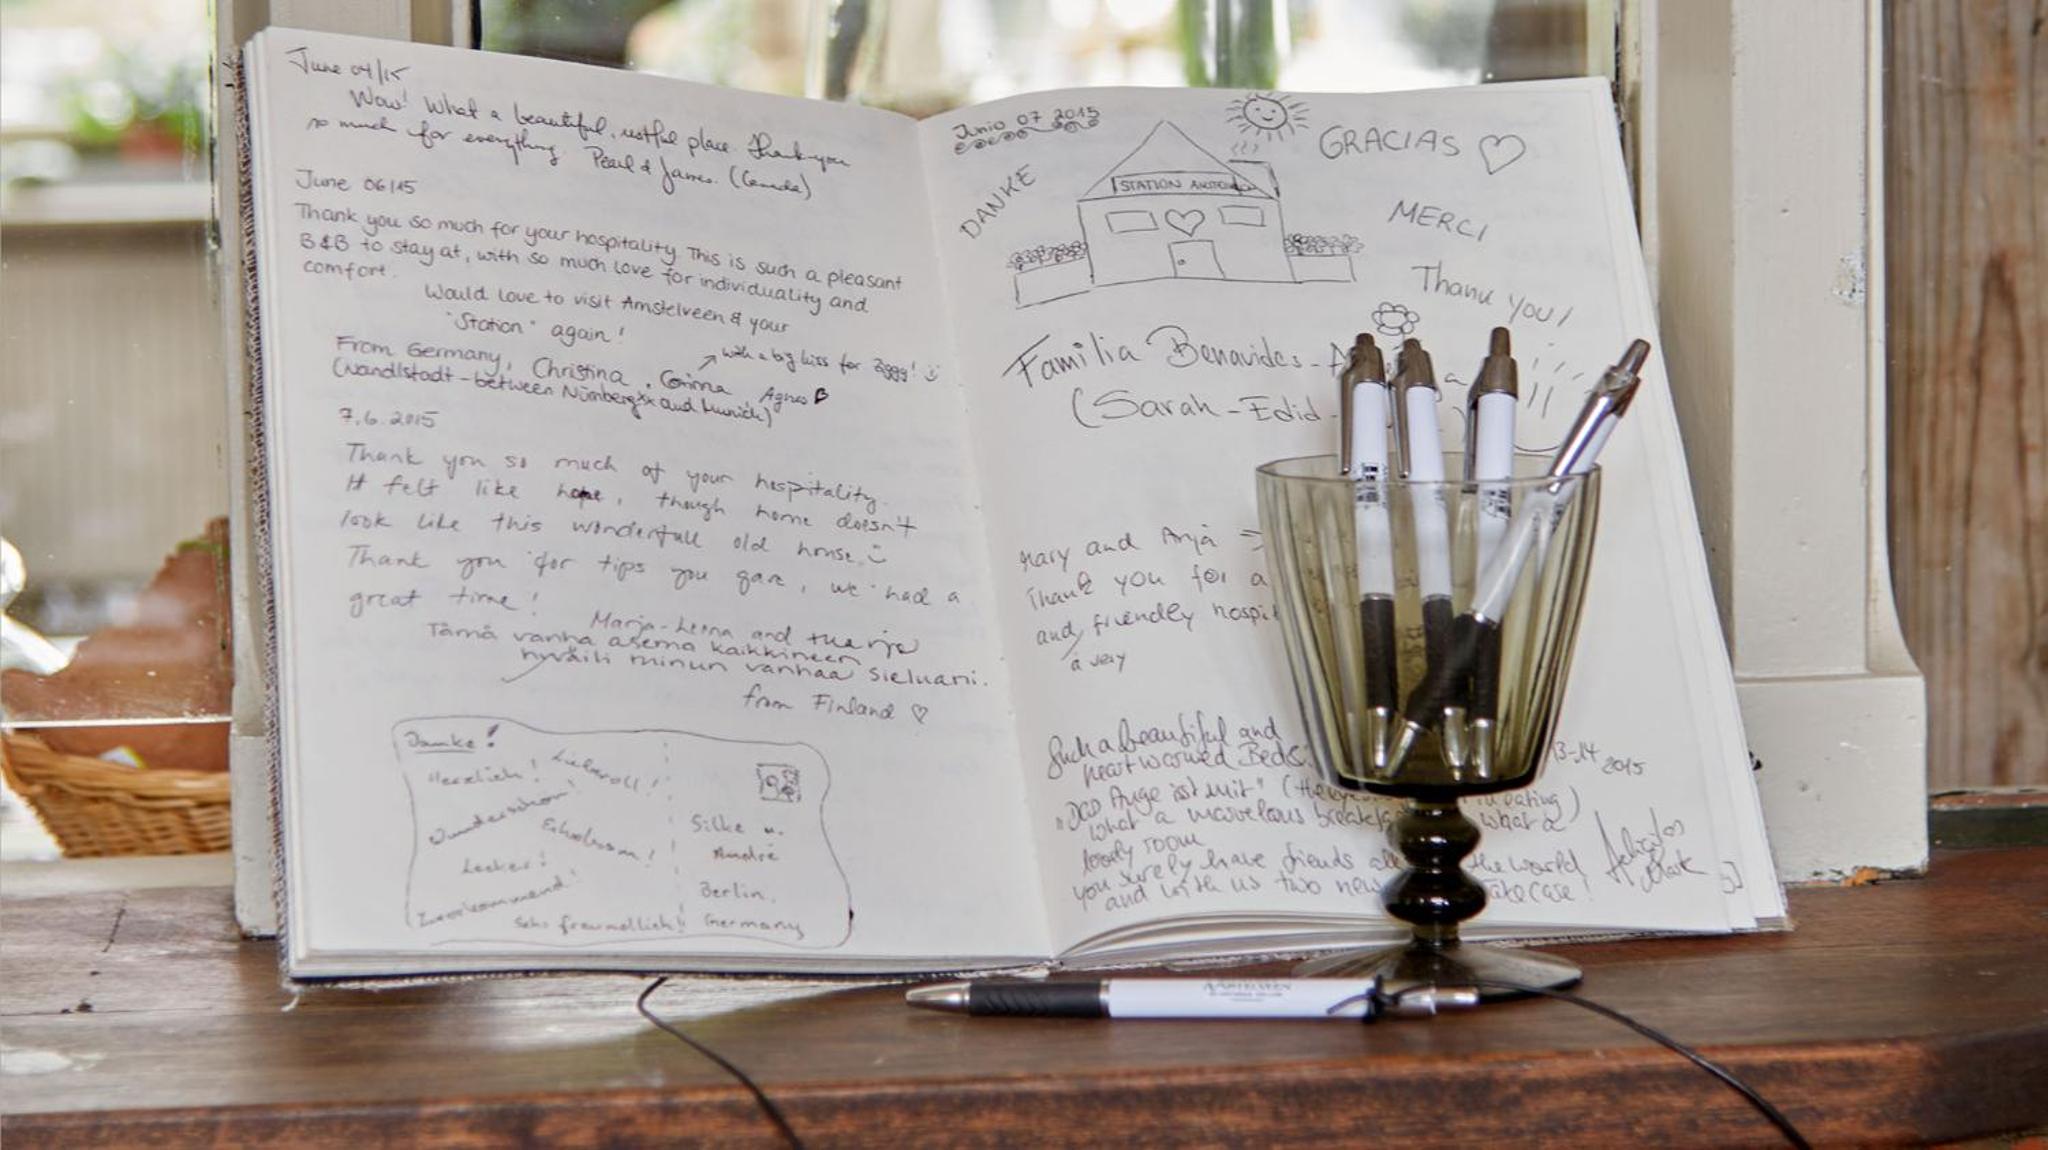 June 04/15
Wow! What a beautiful, restful place. Thank you
so much for everything. Pearl & James. (Canada)
June 06/15
Thank you so much for your hospitality. This is such a pleasant
B&B to stay at, with so much love for individuality and
comfort.
Would love to visit Amstelveen & your
"Station" again!
with a big kiss for Ziggy!
From Germany, Christina, Corinna, Agnes
(Nandlstadt - between Nürnberg and Munich)
7.6.2015
Thank you so much of your hospitality.
It felt like home, though home doesn't
look like this wonderfull old house. :)
Thank you for tips you gave, we had a
great time!
Marja-Leena and Tuarja
Tämä vanha asema kaikkineen
hyväili minun vanhaa sieluani.
from Finland ♡
Danke!
Herzlich! Liebevoll!
Wunderschön!
Erholsam!
Lecker!
Zuvorkommend!
Sehr freundlich!!
Silke u.
André
Berlin,
Germany
Junio 07 2015
GRACIAS ♡
DANKE
STATION
MERCI
Thank you!
Familia Benavides-
(Sarah - Edid -
Mary and Anja =>
Thank you for a
and friendly hospit
a very
Such a beautiful and
heartwarmed Bed&
13-14 2015
"Das Auge isst mit" (the eating)
what a marvelous breakfa what a
lovely room
you surely have friends all the world
and with us two new Take care!
AMSTELVEEN